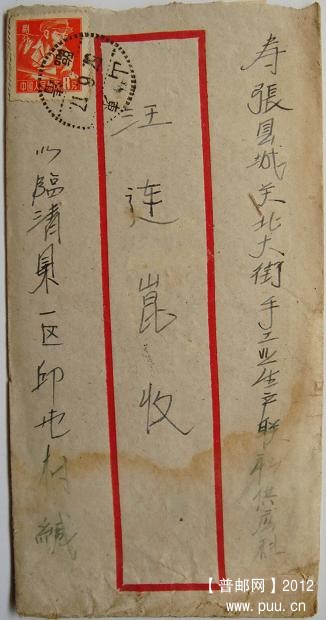 寿張县城关北大街手工业生产联社供应社
汪连崑收
临清县一区邱屯村缄
中国人民邮政
8分
山东
【普邮网】2012
www.puu.cn